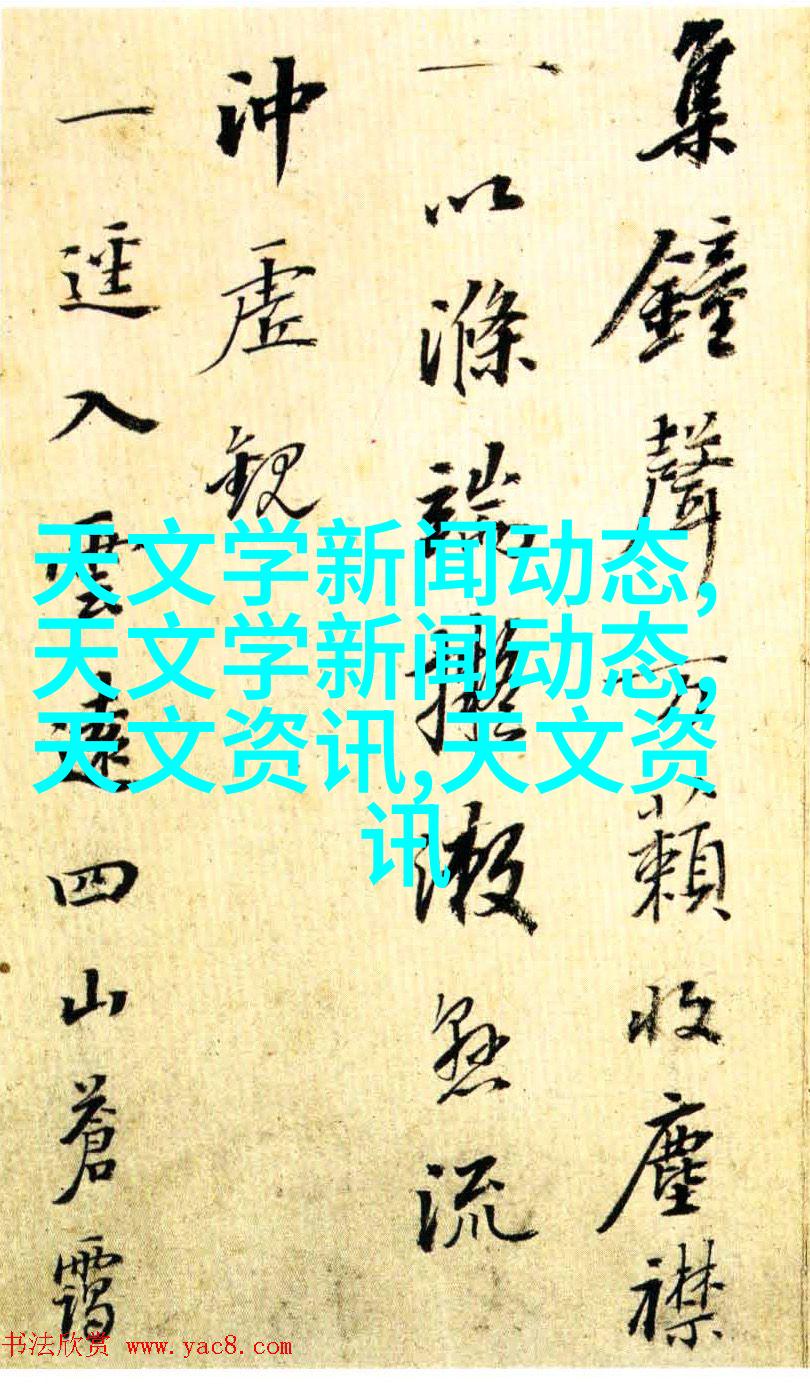 集鐘聲万籟收塵襟
一以滌端擬澂忽流
沖虛觀
一逕入雲遠四山蒼靄
天文学新闻动态,
天文学新闻动态,
天文资讯,天文资
讯
书法欣赏 www.yac8.com